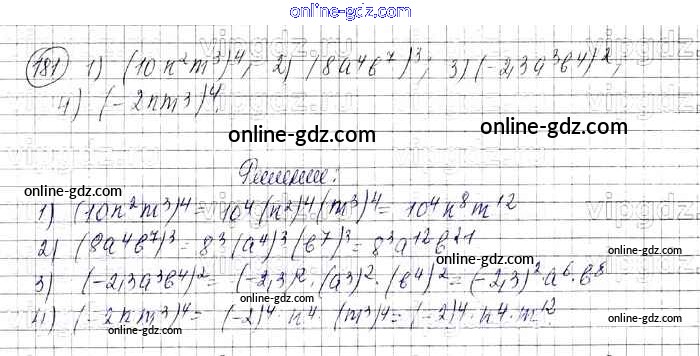 online-gdz.com
181 1) (10n²m³)⁴; 2) (8a⁴b⁷)³; 3) (-2,3a³b⁴)²;
4) (-2nm³)⁴.
online-gdz.com online-gdz.com
Решение:
online-gdz.com
1) (10n²m³)⁴ = 10⁴(n²)⁴(m³)⁴ = 10⁴n⁸m¹²
2) (8a⁴b⁷)³ = 8³(a⁴)³(b⁷)³ = 8³a¹²b²¹
online-gdz.com
3) (-2,3a³b⁴)² = (-2,3)²·(a³)²·(b⁴)² = (-2,3)²a⁶·b⁸
online-gdz.com
4) (-2nm³)⁴ = (-2)⁴·n⁴·(m³)⁴ = (-2)⁴·n⁴·m¹².
online-gdz.com online-gdz.com